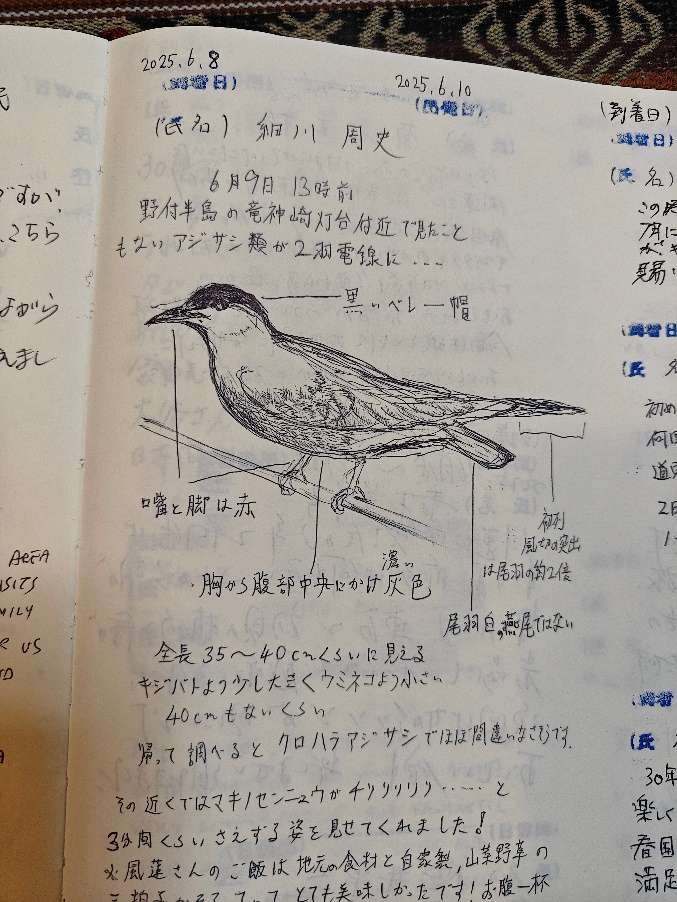 2025.6.8
(到着日)
2025.6.10
(出発日)
(氏名) 細川 周史
6月9日 13時前
野付半島の竜神崎灯台付近で見たこと
もないアジサシ類が2羽電線に....
黒いベレー帽
嘴と脚は赤
胸から腹部中央にかけ濃い灰色
初列
風切の突出
は尾羽の約2倍
尾羽白。燕尾ではない
全長35〜40cmくらいに見える
キジバトより少し大きくウミネコより小さい
40cmもないくらい
帰って調べるとクロハラアジサシでほぼ間違いなさそうです。
その近くではマキノセンニュウがチリリリリリ……と
3分間くらいさえずる姿を見せてくれました!
風蓮さんのご飯は地元の食材と自家製,山菜野草の
とても美味しかったです!お腹一杯
ですが
こちら
ながら
えまし
AREA
MILY
US
(到着日)
(到着日)
(氏名)
この
(氏
初め
何
道
2日
(氏
30年
楽し
満足